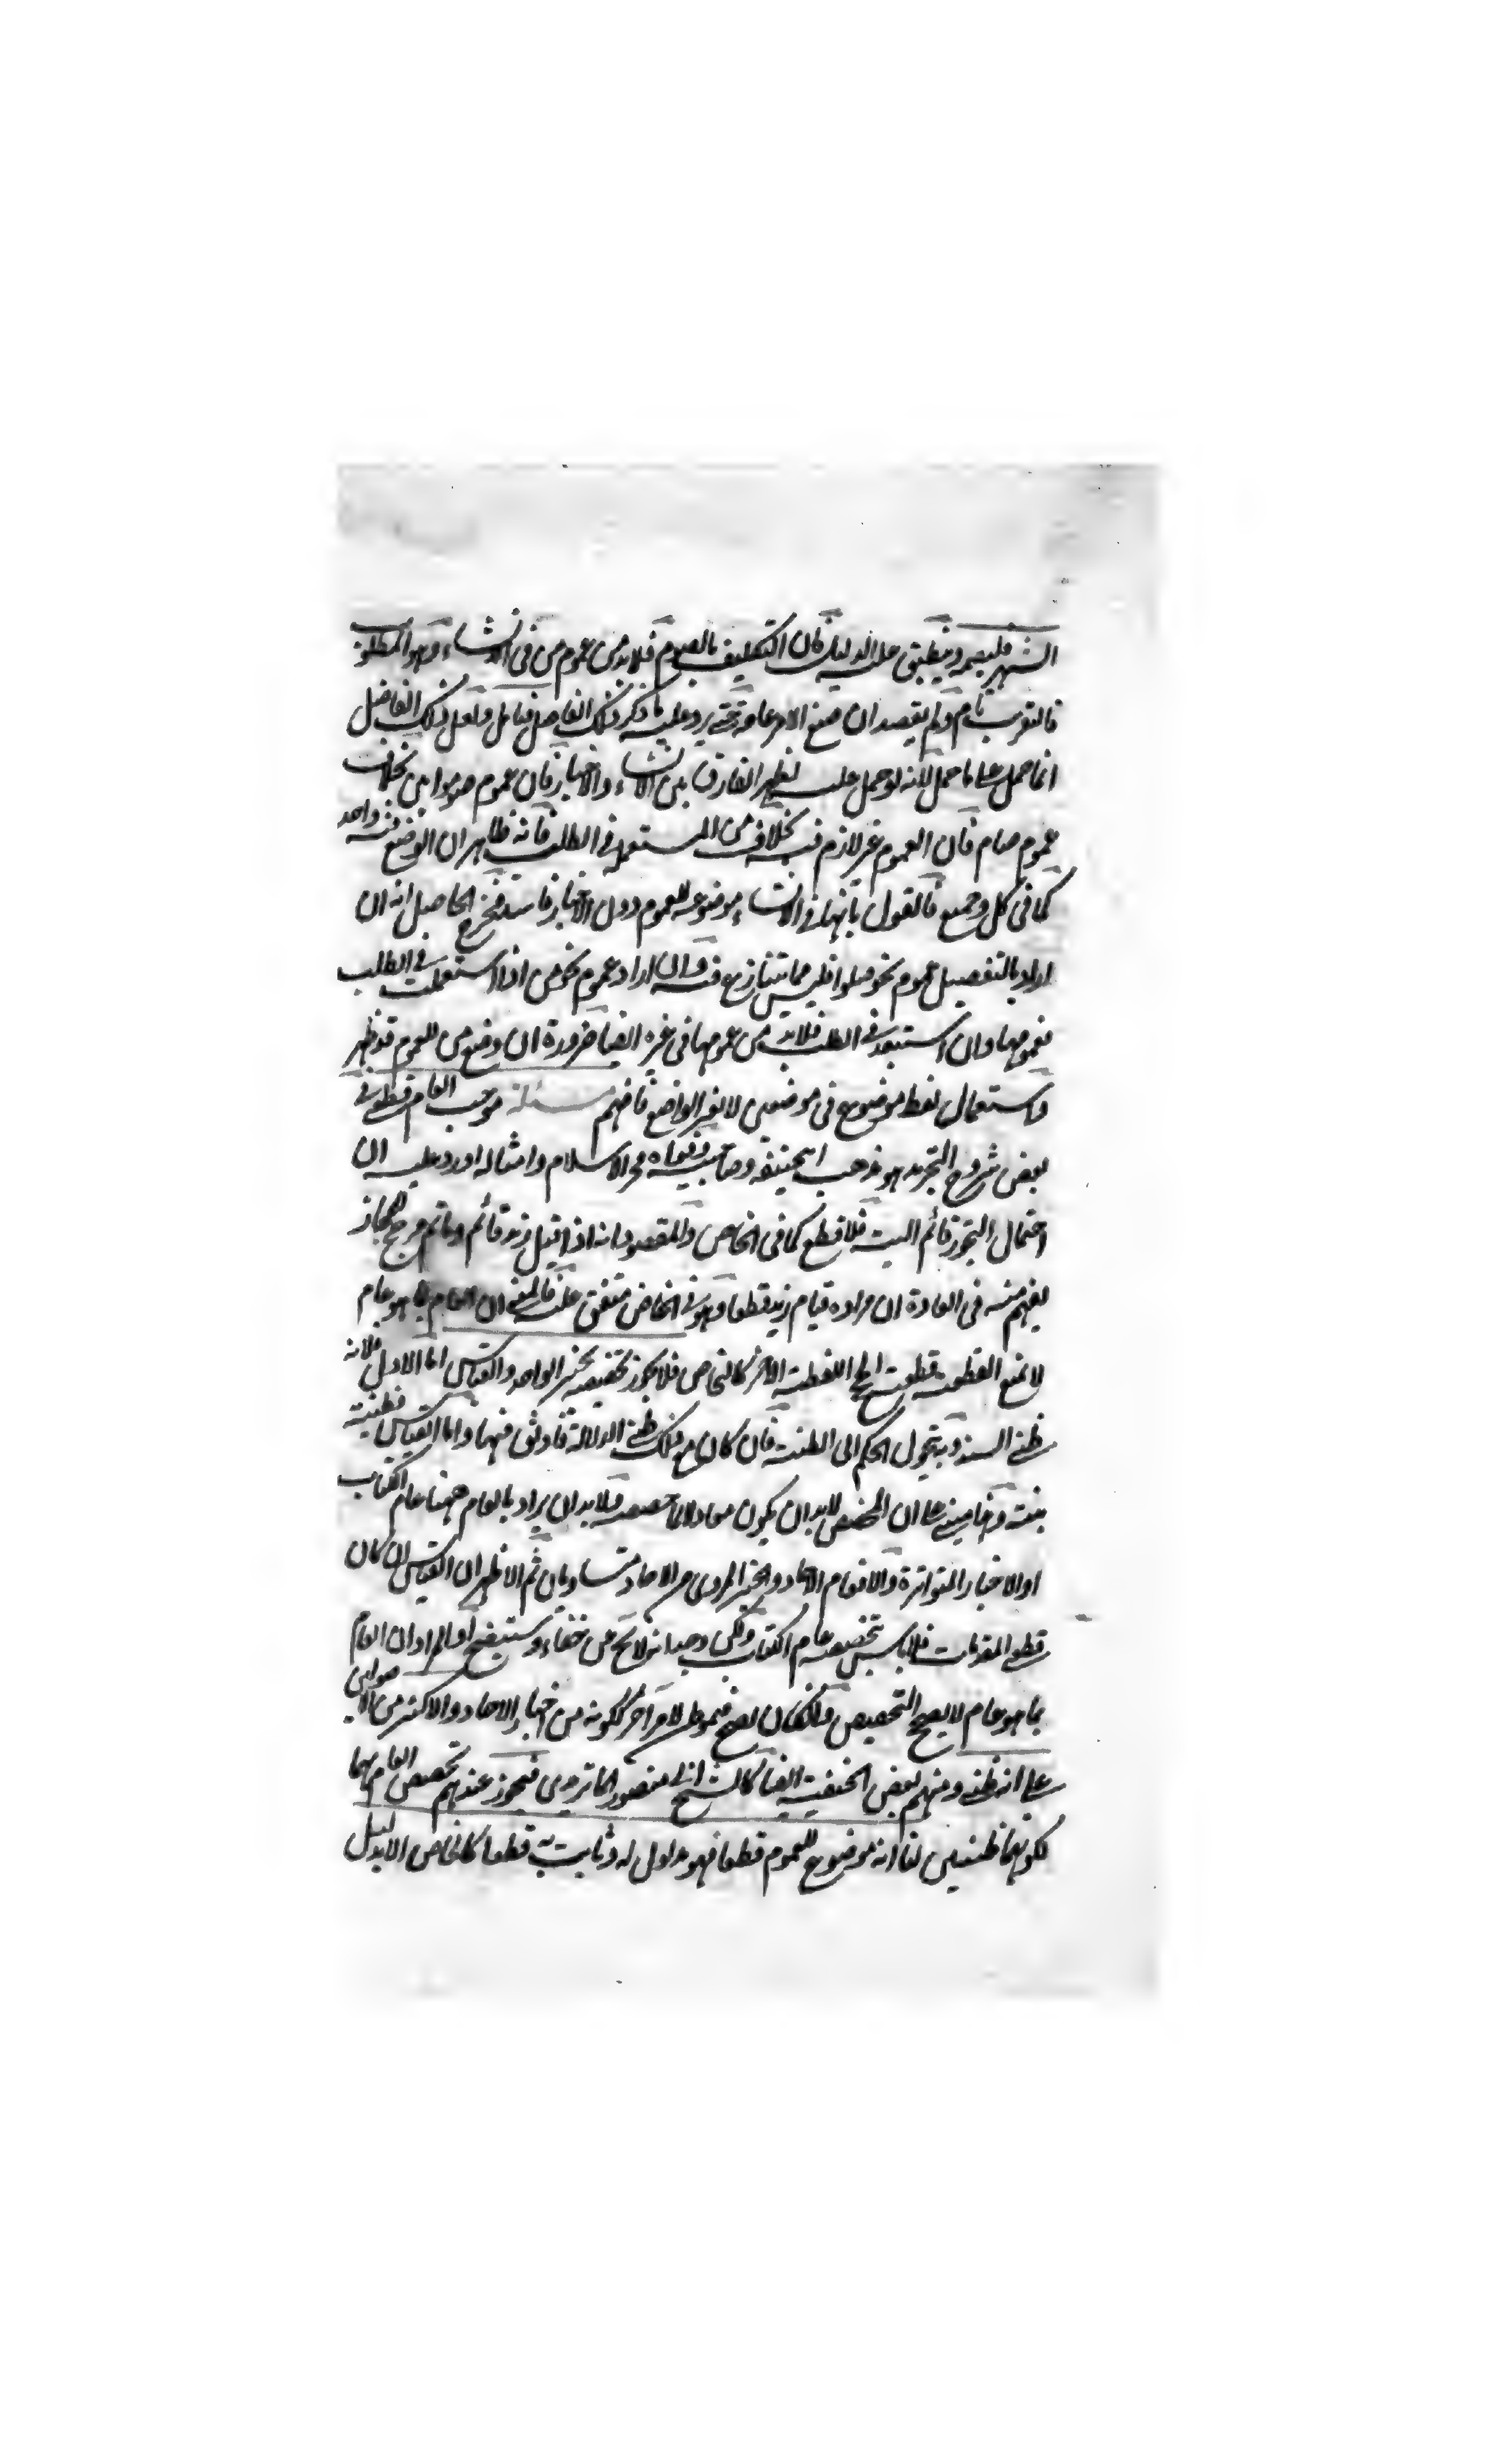 الشهر فليصمه وينطبق عليه الدليل فان التكليف بالصوم فلابد من عموم من في الانشاء وهو المطلوب
فالتقريب تام ولم يقصد ان صيغ الامر عامة حتى يرد عليه ما ذكر ذلك الفاضل فتامل ولعل ذلك الفاضل
انما حمل على ما حمل لانه لو حمل عليه لظهر الفارق بين الانشاء والاخبار فان عموم صوموا من بخلاف
عموم صام فان العموم غير لازم فيه بخلاف من المستعملة في الطلب فانه ظاهر ان الوضع فيه واحد
كما في كل وجميع فالقول بانها في الانشاء موضوعة للعموم دون الاخبار فاسد فخرج الحاصل انه ان
اراد بالتفصيل عموم نحو صلوا فليس مما يتنازع فيه وان اراد عموم نحو من اذا استعملت في الطلب
فعمومها وان استبعد في الطلب فلابد من عمومها في غيره ايضا ضرورة ان وضع من للعموم قد ظهر
واستعمال لفظ موضوع في موضعين لا يغير الواضع فافهم مسئلة موجب العام قطعي في
بعض شروح التحرير هو مذهب ابي حنيفة وصاحبيه وقواه فخر الاسلام وامثاله اورد عليه ان
احتمال التجوز قائم البتة فلا قطع كما في الخاص والمقصود انه اذا قيل زيد قائم ولم مرجح للمجاز
يفهم منه في العادة ان مراده قيام زيد قطعا وهو في الخاص متفق عليه فالمعنى ان العام بما هو عام
لا تمنع القطعية قطعية الحج اللفظية الاخر كالخاص فلا يجوز تخصيصه بخبر الواحد والقياس اما الاول فلانه
ظني السند وبه يتحول الحكم الى الظنية فان كان مع ذلك ظني الدلالة فاوثق فيها واما القياس فظنيته
بينة وهذا مبني على ان المخصص لابد ان يكون معادلا لما خصصه فلابد ان يراد بالعام ههنا عام الكتاب
او الاخبار المتواترة والا فعام الاحاد والخبر المروي من الاحاد متساويان ثم الاظهر ان القياس ان كان
قطعي المقدمات فلا باس بتخصيصه عام الكتاب ولكن وجدانه لا يخ عن خفاء وستيضح او المراد ان العام
بما هو عام لا يصح التخصيص ولئن كان يصح فهو لامر اخر ككونه من اخبار الاحاد والاكثر من الاصوليين
على انه ظني ومنهم بعض الحنفية ايضا كالشيخ ابي منصور الماتريدي فيجوز عندهم تخصيص العام بهما
لكونهما ظنيين لنا انه موضوع للعموم قطعا فهو مدلول له وثابت به قطعا كالخاص الا بدليل